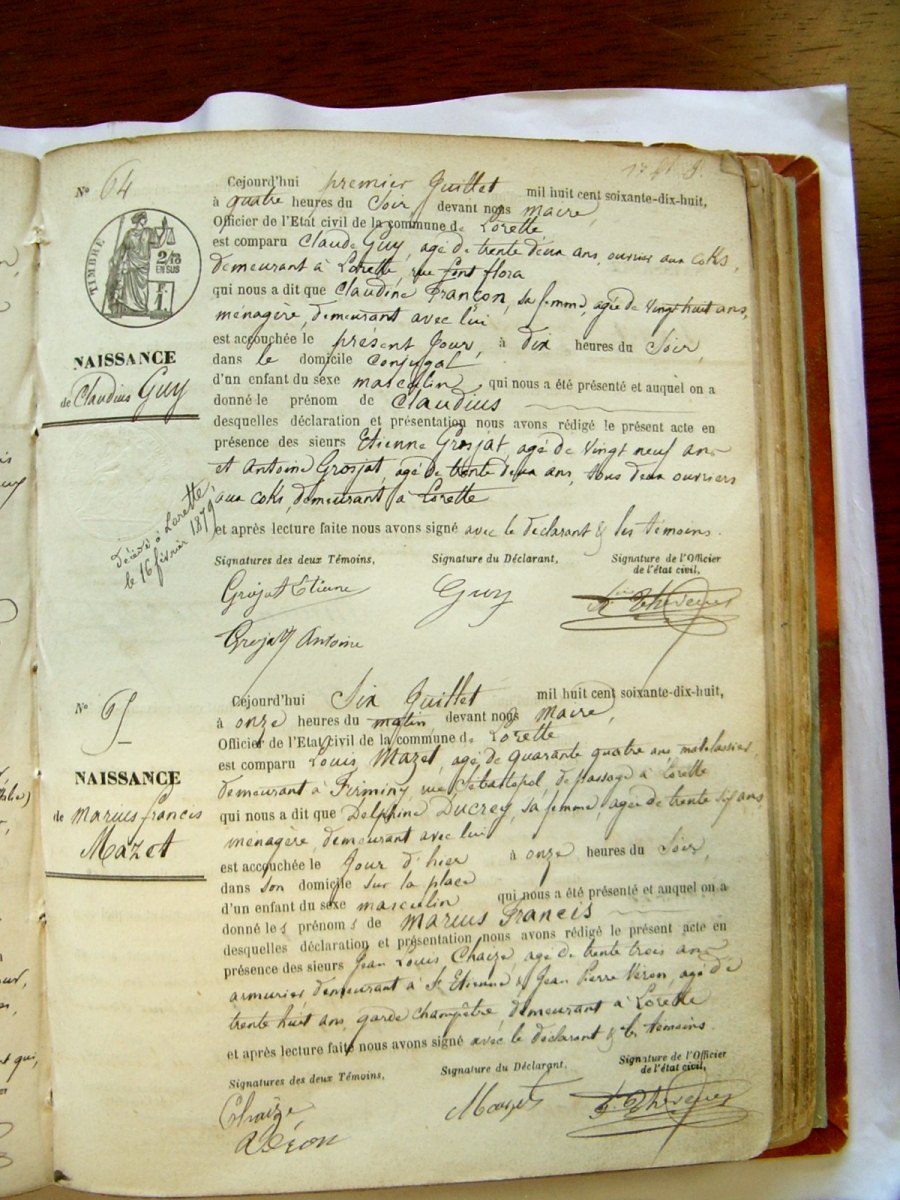 N° 64
TIMBRE
2/10
EN SUS
NAISSANCE
de Claudius Guy
Décédé à Lorette,
le 16 février 1879
Cejourd'hui premier Juillet mil huit cent soixante-dix-huit,
à quatre heures du Soir, devant nous maire,
Officier de l'Etat civil de la commune de Lorette,
est comparu Claude Guy, agé de trente deux ans, ouvrier aux coks,
demeurant à Lorette, rue font flora
qui nous a dit que Claudine Françon, sa femme, agée de vingt huit ans,
ménagère, demeurant avec lui
est accouchée le présent Jour, à dix heures du Soir,
dans le domicile conjugal
d'un enfant du sexe masculin, qui nous a été présenté et auquel on a
donné le prénom de Claudius
desquelles déclaration et présentation nous avons rédigé le présent acte en
présence des sieurs Etienne Grosjat, agé de vingt neuf ans
et Antoine Grosjat, agé de trente deux ans, tous deux ouvriers
aux coks, demeurant à Lorette
et après lecture faite nous avons signé avec le déclarant & les témoins.
Signatures des deux Témoins,
Signature du Déclarant,
Signature de l'Officier
de l'état civil,
Grojat Etienne
Guy
Grojat Antoine
N° 65
NAISSANCE
de Marius francis
Mazet
Cejourd'hui Six Juillet mil huit cent soixante-dix-huit,
à onze heures du matin devant nous Maire,
Officier de l'Etat civil de la commune de Lorette
est comparu Louis Mazet, agé de quarante quatre ans, matelassier,
demeurant à Firminy, rue Sébastopol, de passage à Lorette
qui nous a dit que Delphine Ducrey, sa femme, agée de trente six ans,
ménagère, demeurant avec lui
est accouchée le Jour d'hier à onze heures du Soir,
dans son domicile sur la place
d'un enfant du sexe masculin qui nous a été présenté et auquel on a
donné les prénoms de Marius Francis
desquelles déclaration et présentation nous avons rédigé le présent acte en
présence des sieurs Jean Louis Chaize, agé de trente trois ans
armurier, demeurant à St Etienne & Jean Pierre Véron, agé de
trente huit ans, garde champêtre, demeurant à Lorette
et après lecture faite nous avons signé avec le déclarant & les témoins.
Signatures des deux Témoins,
Signature du Déclarant,
Signature de l'Officier
de l'état civil,
Chaize
Véron